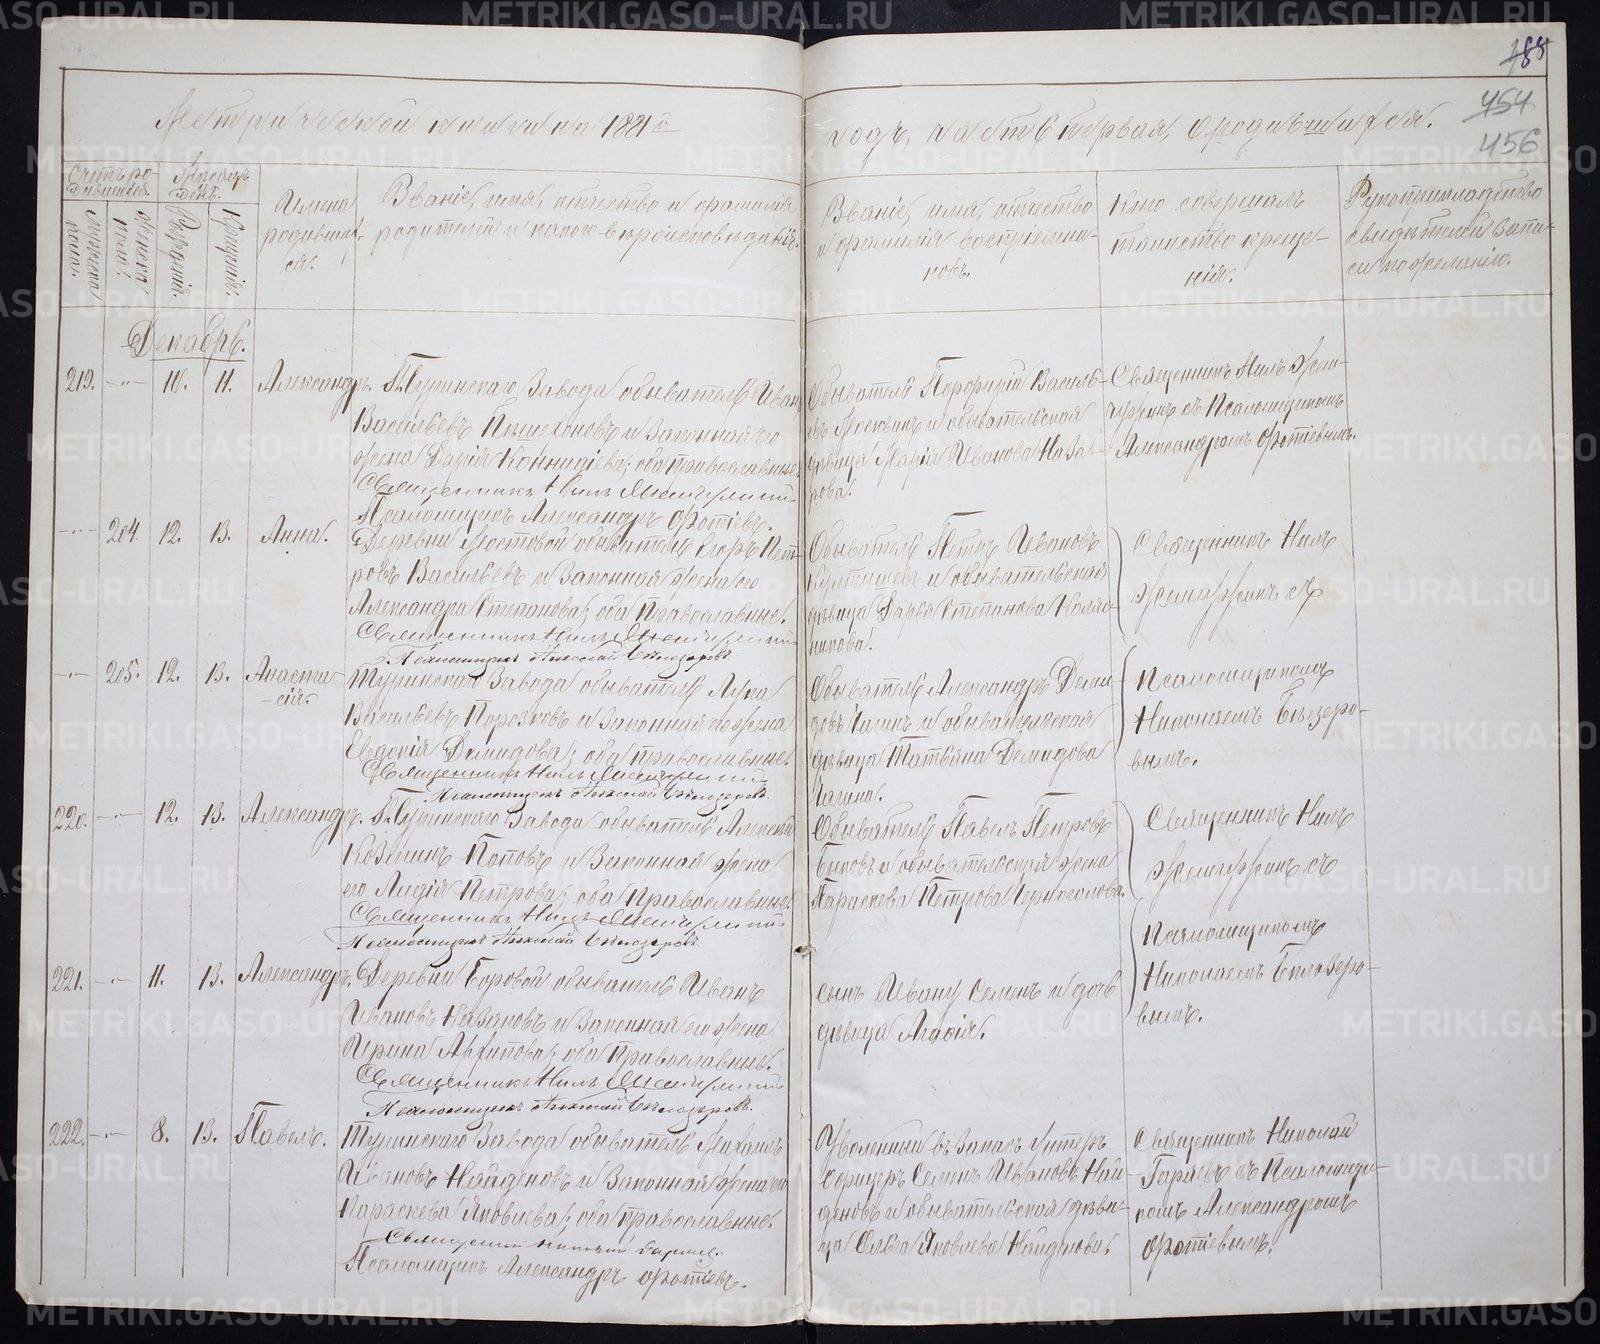 188
454
456
Метрической книги на 1881й годъ, часть первая, о родившихся.
Счетъ родившихся.
Мѣсяцъ и день.
мужска пола.
женска пола.
Рожденія.
Крещенія.
Имена родившихся.
Званіе, имя, отчество и фамилія
родителей и какого вѣроисповѣданія.
Званіе, имя, отчество
и фамилія воспріемни-
ковъ.
Кто совершалъ
таинство креще-
нія.
Рукоприкладство
свидѣтелей запи-
си по желанію.
Декабрь.
219. -"- 10. 11. Александръ.
Туринскаго Завода обыватель Иванъ
Васильевъ и законная его
жена Дарія оба православные.
Священникъ Нилъ
Псаломщикъ Александръ Фотіевъ.
Обыватель Порфирій Василь-
евъ Москвинъ и обывательская
дѣвица Марія Иванова Наза-
рова.
Священникъ Нилъ
съ Псаломщикомъ
Александромъ Фотіевымъ.
-"- 204. 12. 13. Анна.
Деревни обыватель Егоръ Пет-
ровъ Васильевъ и законная жена его
Александра Степанова; оба Православные.
Священникъ Нилъ
Псаломщикъ Николай Бѣлозеровъ.
Обыватель Петръ Ивановъ
и обывательская
дѣвица Дарья Степанова
Священникъ Нилъ
съ
-"- 205. 12. 13. Анаста-
сія.
Туринскаго Завода обыватель Лука
Васильевъ и законная его жена
Евдокія Демидова; оба православные.
Священникъ Нилъ
Псаломщикъ Николай Бѣлозеровъ.
Обыватель Александръ Деми-
довъ Чагинъ и обывательская
дѣвица Татьяна Демидова
Чагина.
Псаломщикомъ
Николаемъ Бѣлозеро-
вымъ.
220. -"- 12. 13. Александръ.
Туринскаго Завода обыватель Алексѣй
Козьминъ Поповъ и законная жена
его Лидія Петрова; оба Православные.
Священникъ Нилъ
Псаломщикъ Николай Бѣлозеровъ.
Обыватель Павелъ Петровъ
Быковъ и обывательская жена
Параскева Петрова Черноголова.
Священникъ Нилъ
съ
221. -"- 11. 13. Александръ.
Деревни Боровой обыватель Иванъ
Ивановъ Казаковъ и законная его жена
Ирина Архипова; оба Православные.
Священникъ Нилъ
Псаломщикъ Николай Бѣлозеровъ.
сынъ Ивану Семенъ и дочь
дѣвица
Псаломщикомъ
Николаемъ Бѣлозеро-
вымъ.
222. -"- 8. 13. Павелъ.
Туринскаго Завода обыватель Михаилъ
Ивановъ Найденовъ и законная жена его
Параскева Яковлева; оба православные.
Священникъ Николай
Псаломщикъ Александръ Фотіевъ.
Уволенный въ запасъ Унтеръ
Офицеръ Семенъ Ивановъ Най-
деновъ и обывательская дѣви-
ца Ольга Яковлева Найденова.
Священникъ Николай
съ Псаломщи-
комъ Александромъ
Фотіевымъ.
METRIKI.GASO-URAL.RU